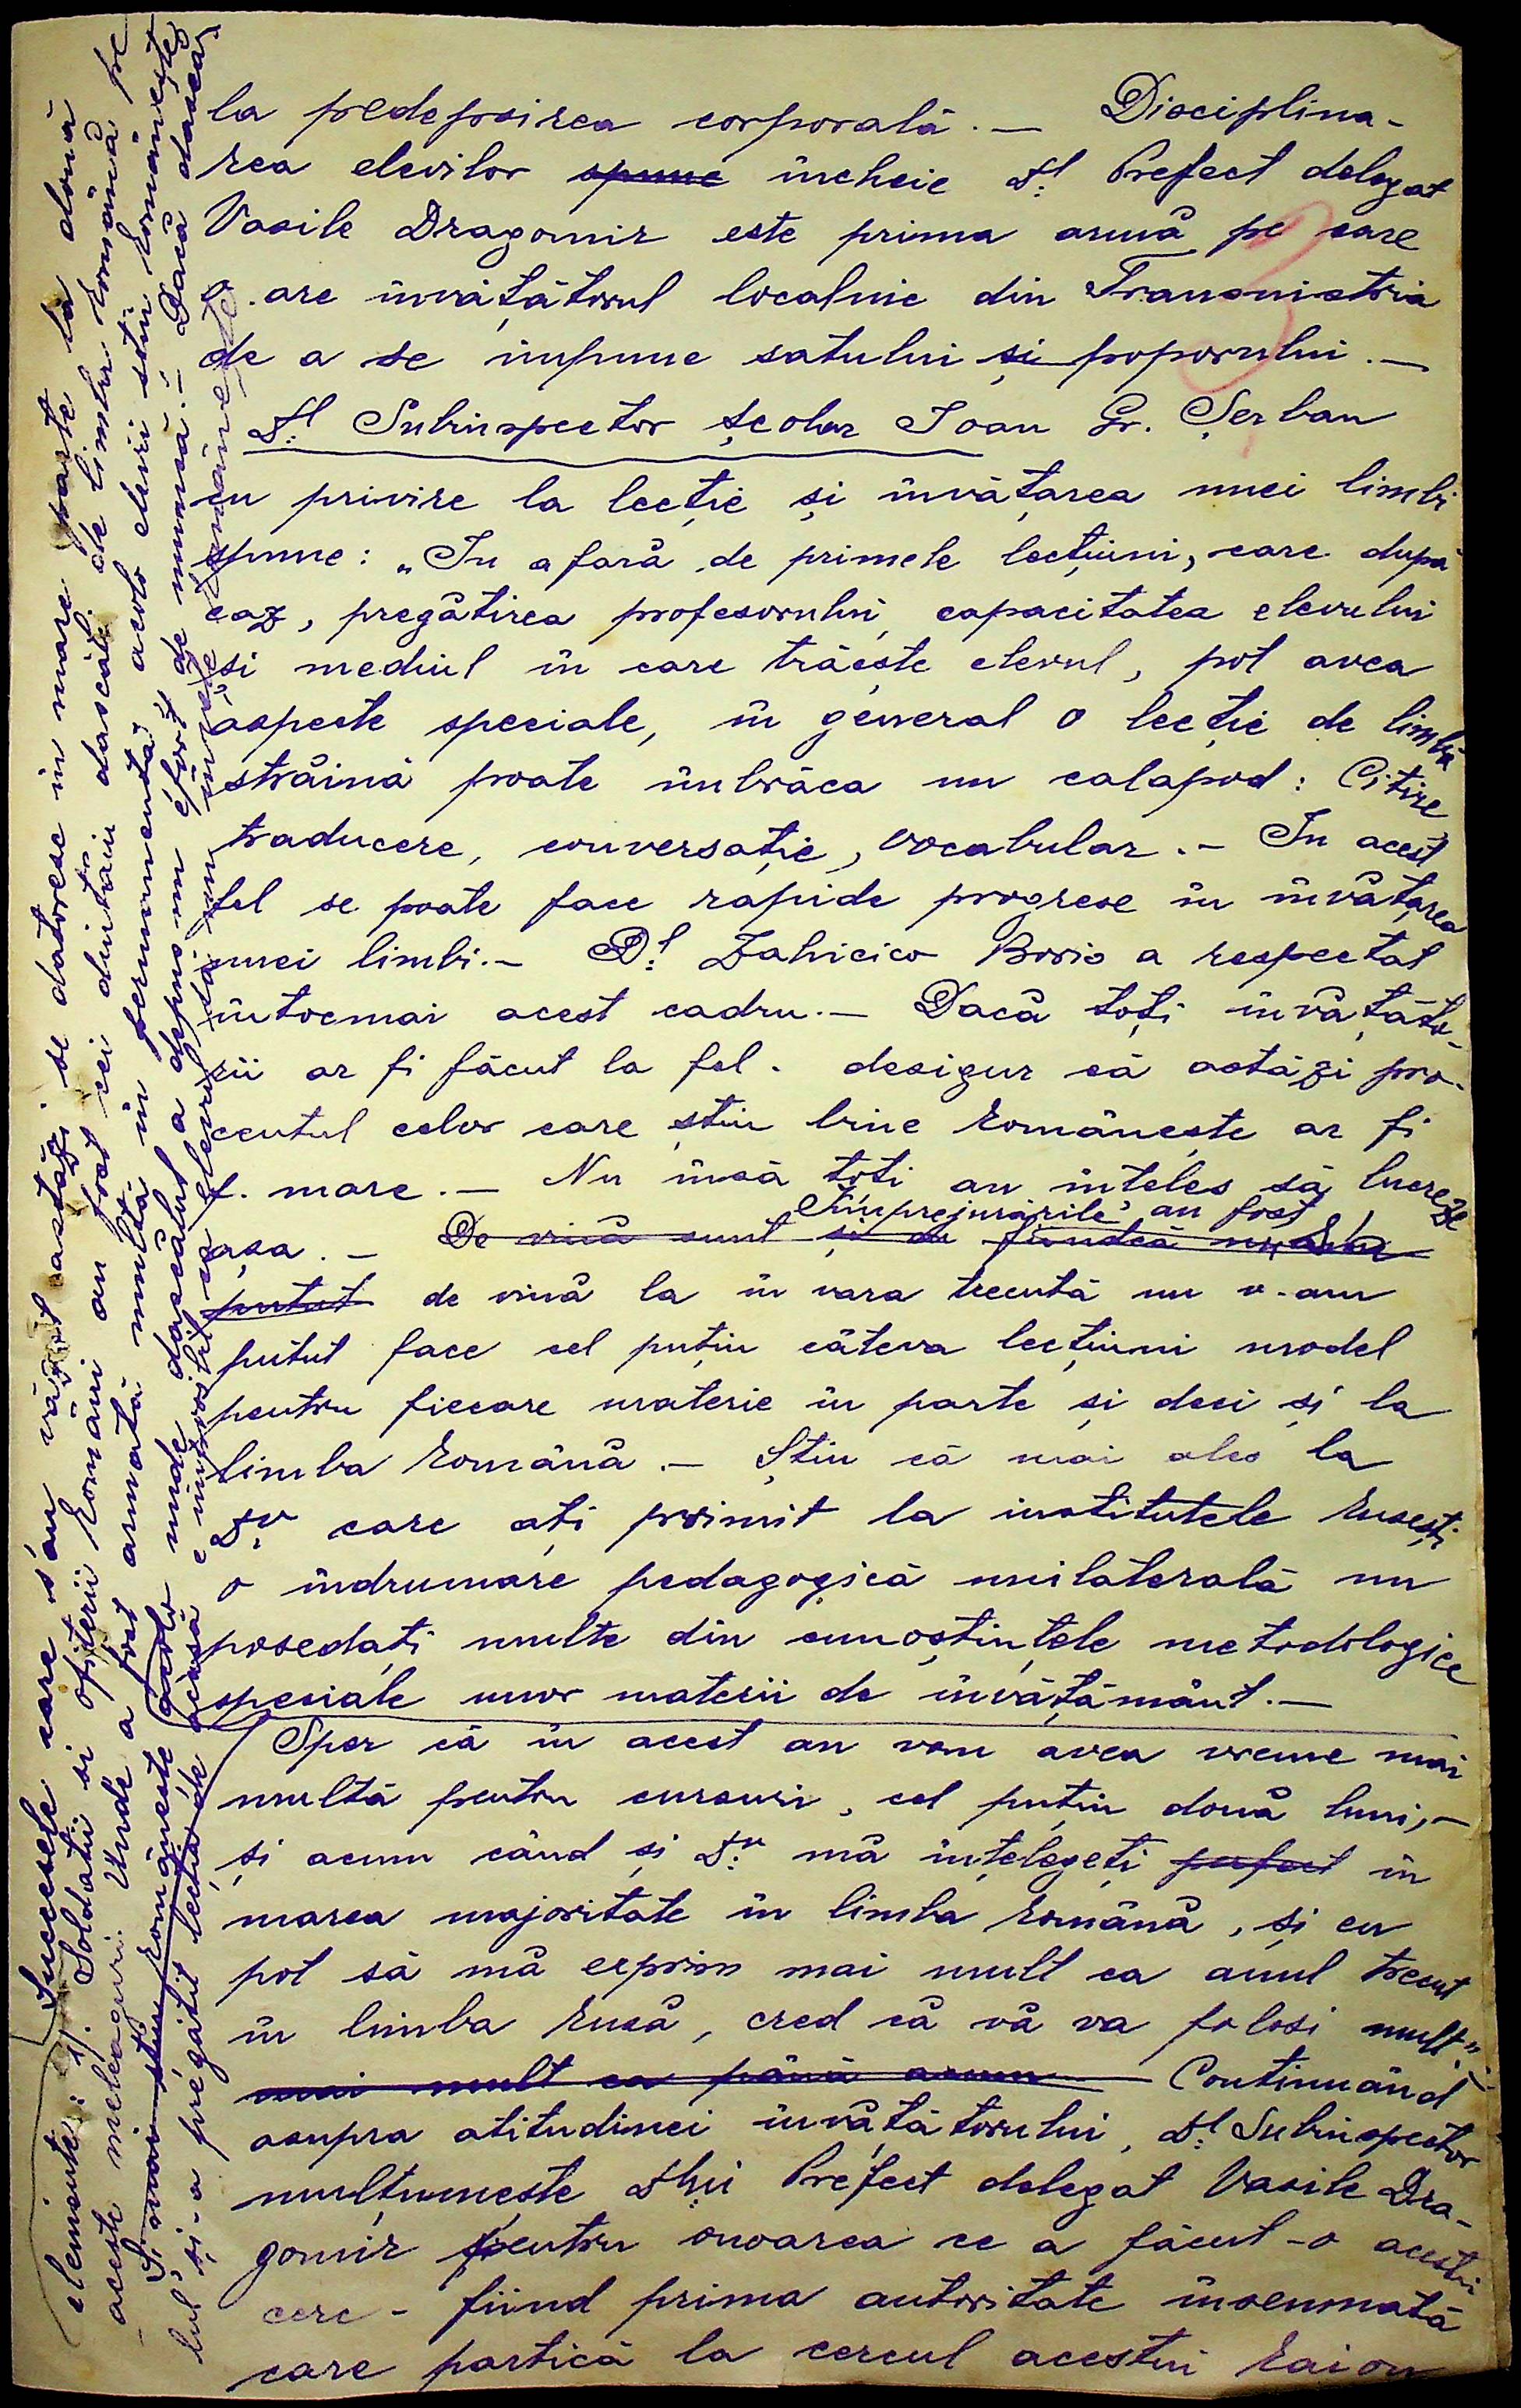 la pedepsirea corporală. — Disciplina-
rea elevilor spune încheie D-l Prefect delegat
Vasile Dragomir este prima armă pe care
o are învățătorul localnic din Transnistria
de a se impune satului și poporului. —
D-l Subinspector școlar Ioan Gr. Șerban
cu privire la lecție și învățarea unei limbi
spune: „In afară de primele lecțiuni, care după
caz, pregătirea profesorului, capacitatea elevului
și mediul în care trăește elevul, pot avea
aspecte speciale, în general o lecție de limbă
străină poate îmbrăca un calapod: Citire
traducere, conversație, vocabular. — In acest
fel se poate face rapide progrese în învățarea
unei limbi. — D-l Zahicico Boris a respectat
întocmai acest cadru. — Dacă toți învățăto-
rii ar fi făcut la fel. desigur că astăzi pro-
centul celor care știu bine românește ar fi
f. mare. — Nu însă toți au înteles să lucreze
Împrejurările au fost
așa. — De vină sunt și eu fiindcă nu am
putut de vină la în vara trecută nu v-am
putut face cel puțin câteva lecțiuni model
pentru fiecare materie în parte și deci și la
limba română. — Știu că mai ales la
Dv. care ați primit la institutele rusești
o îndrumare pedagogică unilaterală nu
posedați multe din cunoștințele metodologice
speciale unor materii de învățământ. —
Sper că în acest an vom avea vreme mai
multă pentru cursuri, cel puțin două luni, —
și acum când și Dv. mă înțelegeți perfect în
marea majoritate în limba română, și eu
pot să mă exprim mai mult ca anul trecut
în limba rusă, cred că vă va folosi mult."
mai mult ca până acum — Continuând
asupra atitudinei învățătorului, D-l Subinspector
mulțumește D-lui Prefect delegat Vasile Dra-
gomir pentru onoarea ce a făcut-o acestui
cerc - fiind prima autoritate însemnată
care partică la cercul acestui raion
Succesele care s'au văzut astăzi se datoresc în mare parte la două
elemente: 1). Soldatii si ofițerii Români au fost cei dintâi dascăli de limba română pe
aceste meleaguri. Unde a fost armată multă în permanență, acolo elevii știu românește
Și mai știu românește acolo unde dascălul a depus un efort de muncă. — Dacă dască-
lul și-a pregătit lecția de acasă e imposibil ca elevul să nu învețe